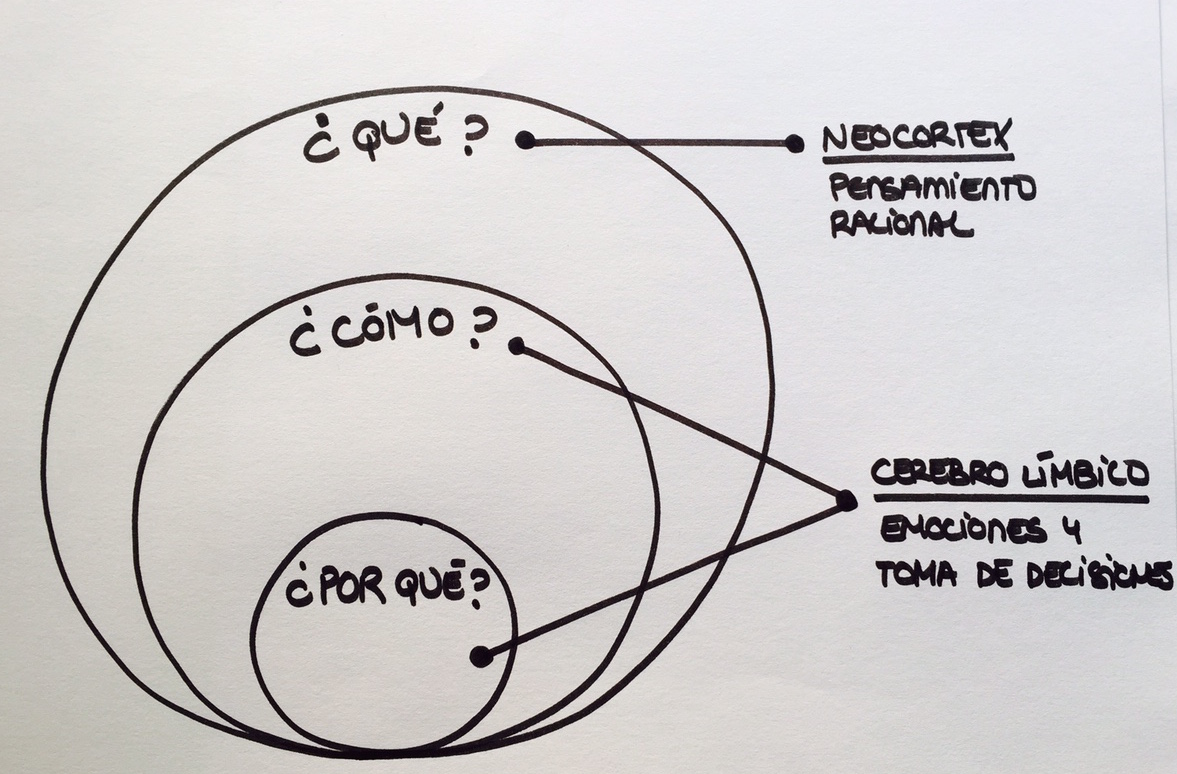 ¿QUÉ?
NEOCORTEX
PENSAMIENTO
RACIONAL
¿CÓMO?
CEREBRO LÍMBICO
EMOCIONES Y
TOMA DE DECISIONES
¿POR QUÉ?